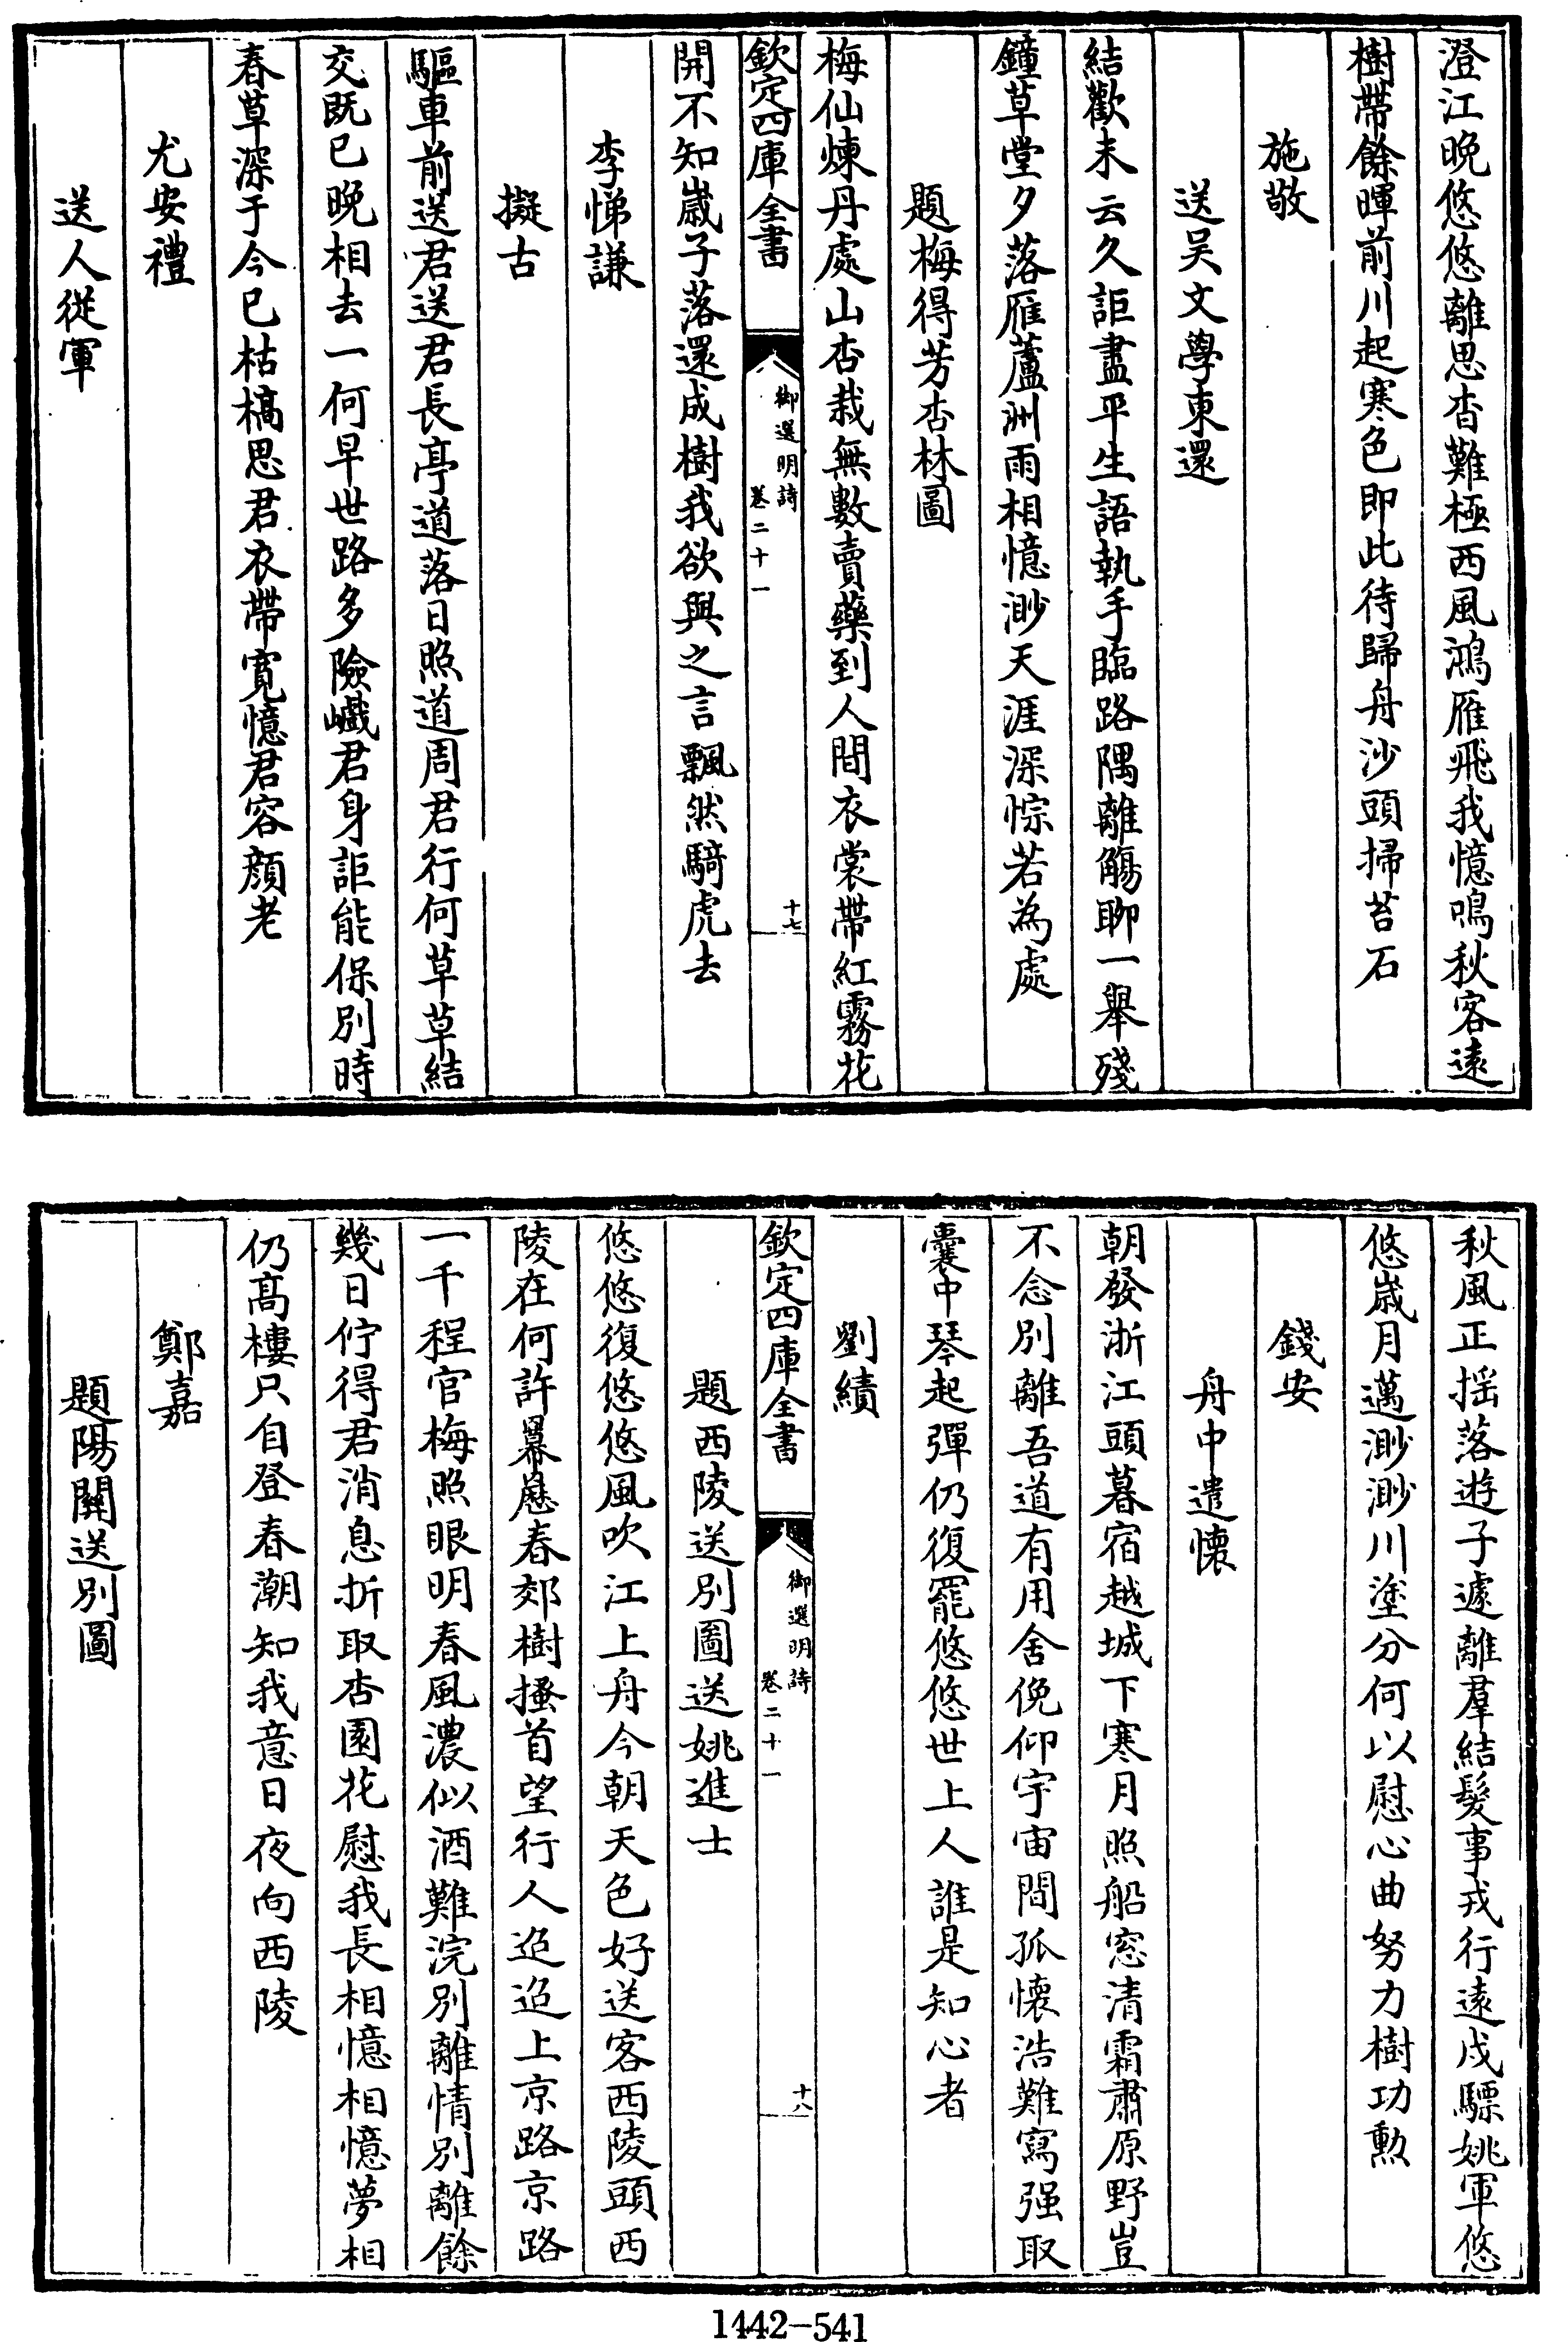 澄江晚悠悠離思杳難極西風鴻雁飛我憶鳴秋客遠
樹帶餘暉前川起寒色即此待歸舟沙頭掃苔石
施敬
送吴文學東還
結歡未云久詎盡平生語執手臨路隅離觴聊一舉殘
鐘草堂夕落雁蘆洲雨相憶渺天涯深悰若為處
題梅得芳杏林圖
梅仙煉丹處山杏栽無數賣藥到人間衣裳帶紅霧花
欽定四庫全書
御選明詩
卷二十一
十七
開不知歲子落還成樹我欲與之言飄然騎虎去
李悌謙
擬古
驅車前送君送君長亭道落日照道周君行何草草結
交既已晚相去一何早世路多險巇君身詎能保別時
春草深于今已枯槁思君衣帶寛憶君容顔老
尤安禮
送人從軍
秋風正揺落遊子遽離羣結髮事戎行遠戍驃姚軍悠
悠歲月邁渺渺川塗分何以慰心曲努力樹功勲
錢安
舟中遣懷
朝發浙江頭暮宿越城下寒月照船窓清霜肅原野豈
不念別離吾道有用舍俛仰宇宙間孤懷浩難寫强取
囊中琴起彈仍復罷悠悠世上人誰是知心者
劉績
欽定四庫全書
御選明詩
卷二十一
十八
題西陵送別圖送姚進士
悠悠復悠悠風吹江上舟今朝天色好送客西陵頭西
陵在何許羃䍥春郊樹搔首望行人迢迢上京路京路
一千程官梅照眼明春風濃似酒難浣別離情別離餘
幾日佇得君消息折取杏園花慰我長相憶相憶夢相
仍髙樓只自登春潮知我意日夜向西陵
鄭嘉
題陽關送別圖
1442-541